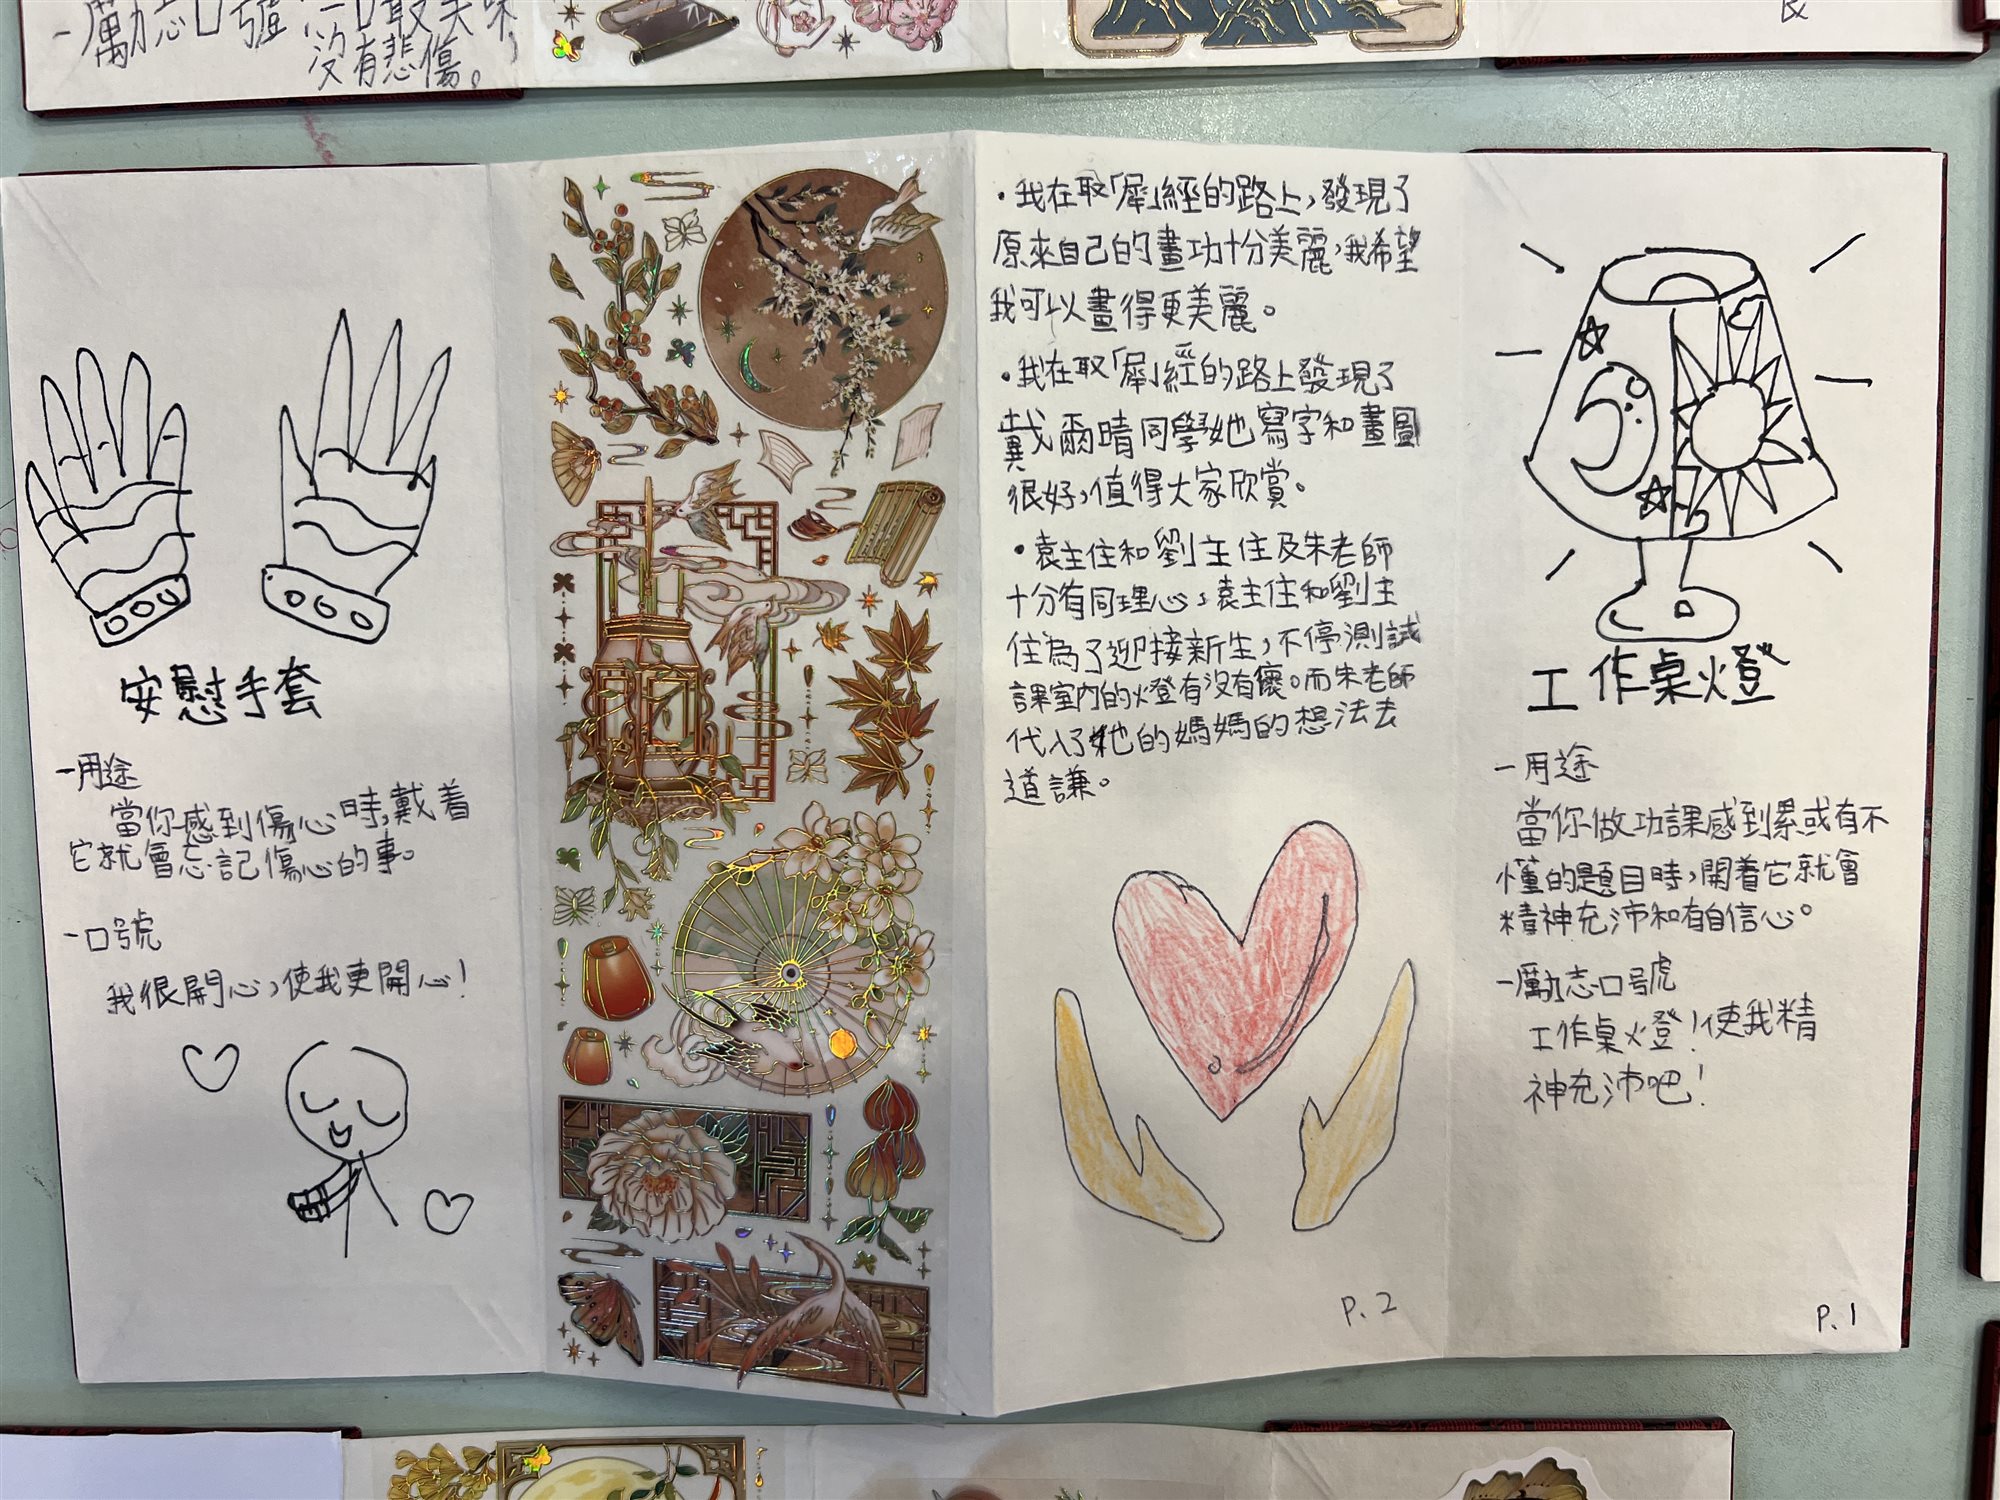 沒有悲傷。
安慰手套
一用途
當你感到傷心時,戴着
它就會忘記傷心的事。
一口號
我很開心,使我更開心!
・我在取「犀」經的路上,發現了
原來自己的畫功十分美麗,我希望
我可以畫得更美麗。
・我在取「犀」經的路上發現了
戴爾晴同學她寫字和畫圖
很好,值得大家欣賞。
・袁主住和劉主住及朱老師
十分有同理心,袁主住和劉主
住為了迎接新生,不停測試
課室內的燈有沒有壞。而朱老師
代入了她的媽媽的想法去
道謙。
P.2
工作桌燈
一用途
當你做功課感到累或有不
懂的題目時,開着它就會
精神充沛和有自信心。
一勵志口號
工作桌燈!使我精
神充沛吧!
P.1